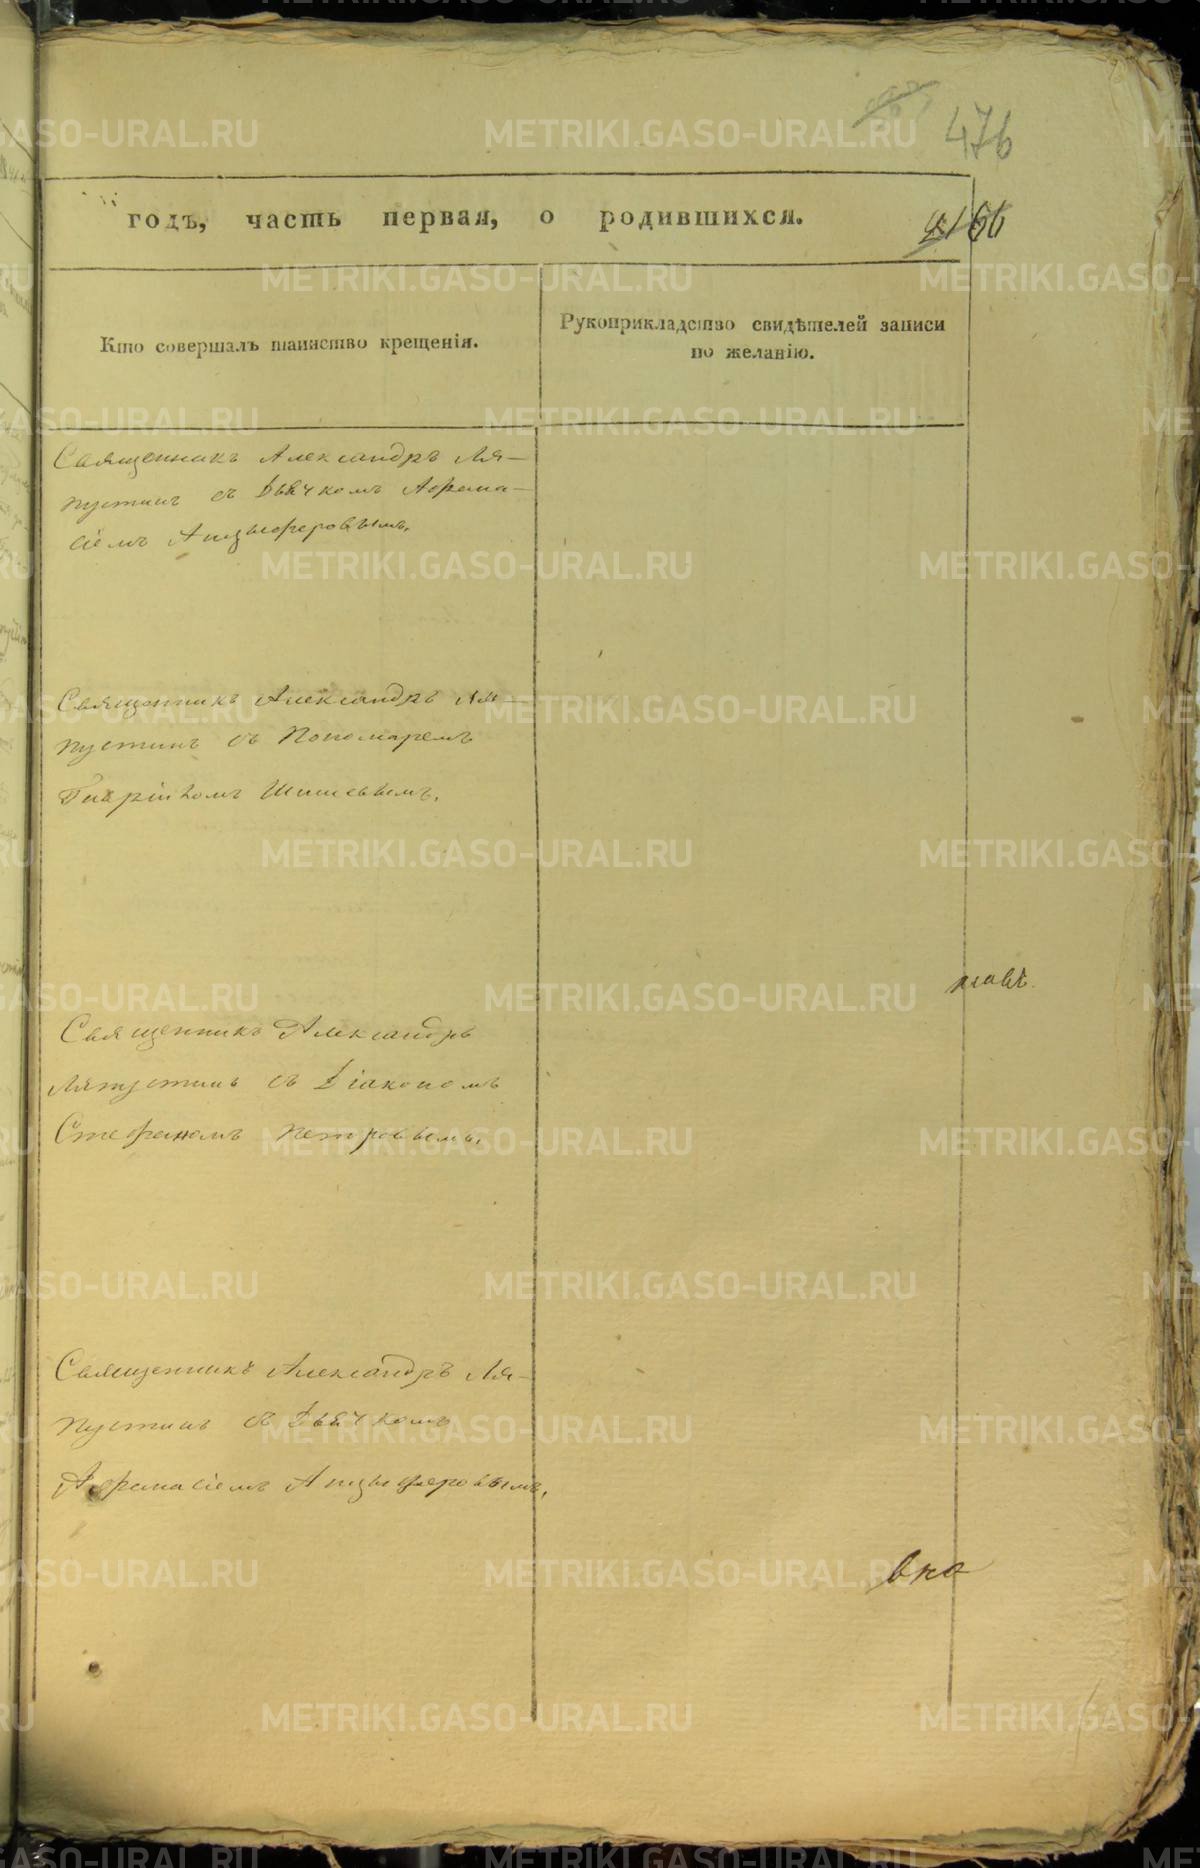 476
годъ, часть первая, о родившихся.
166
Кто совершалъ таинство крещенія.
Рукоприкладство свидѣтелей записи
по желанію.
Священникъ Александръ Ля-
пустинъ съ Дьячкомъ Афана-
сіемъ Анцыферовымъ.
Священникъ Александръ Ля-
пустинъ съ Пономаремъ
Шишевымъ.
Священникъ Александръ
Ляпустинъ съ Діакономъ
Стефаномъ Петровымъ.
Священникъ Александръ Ля-
пустинъ съ Дьячкомъ
Афанасіемъ Анцыферовымъ.
METRIKI.GASO-URAL.RU